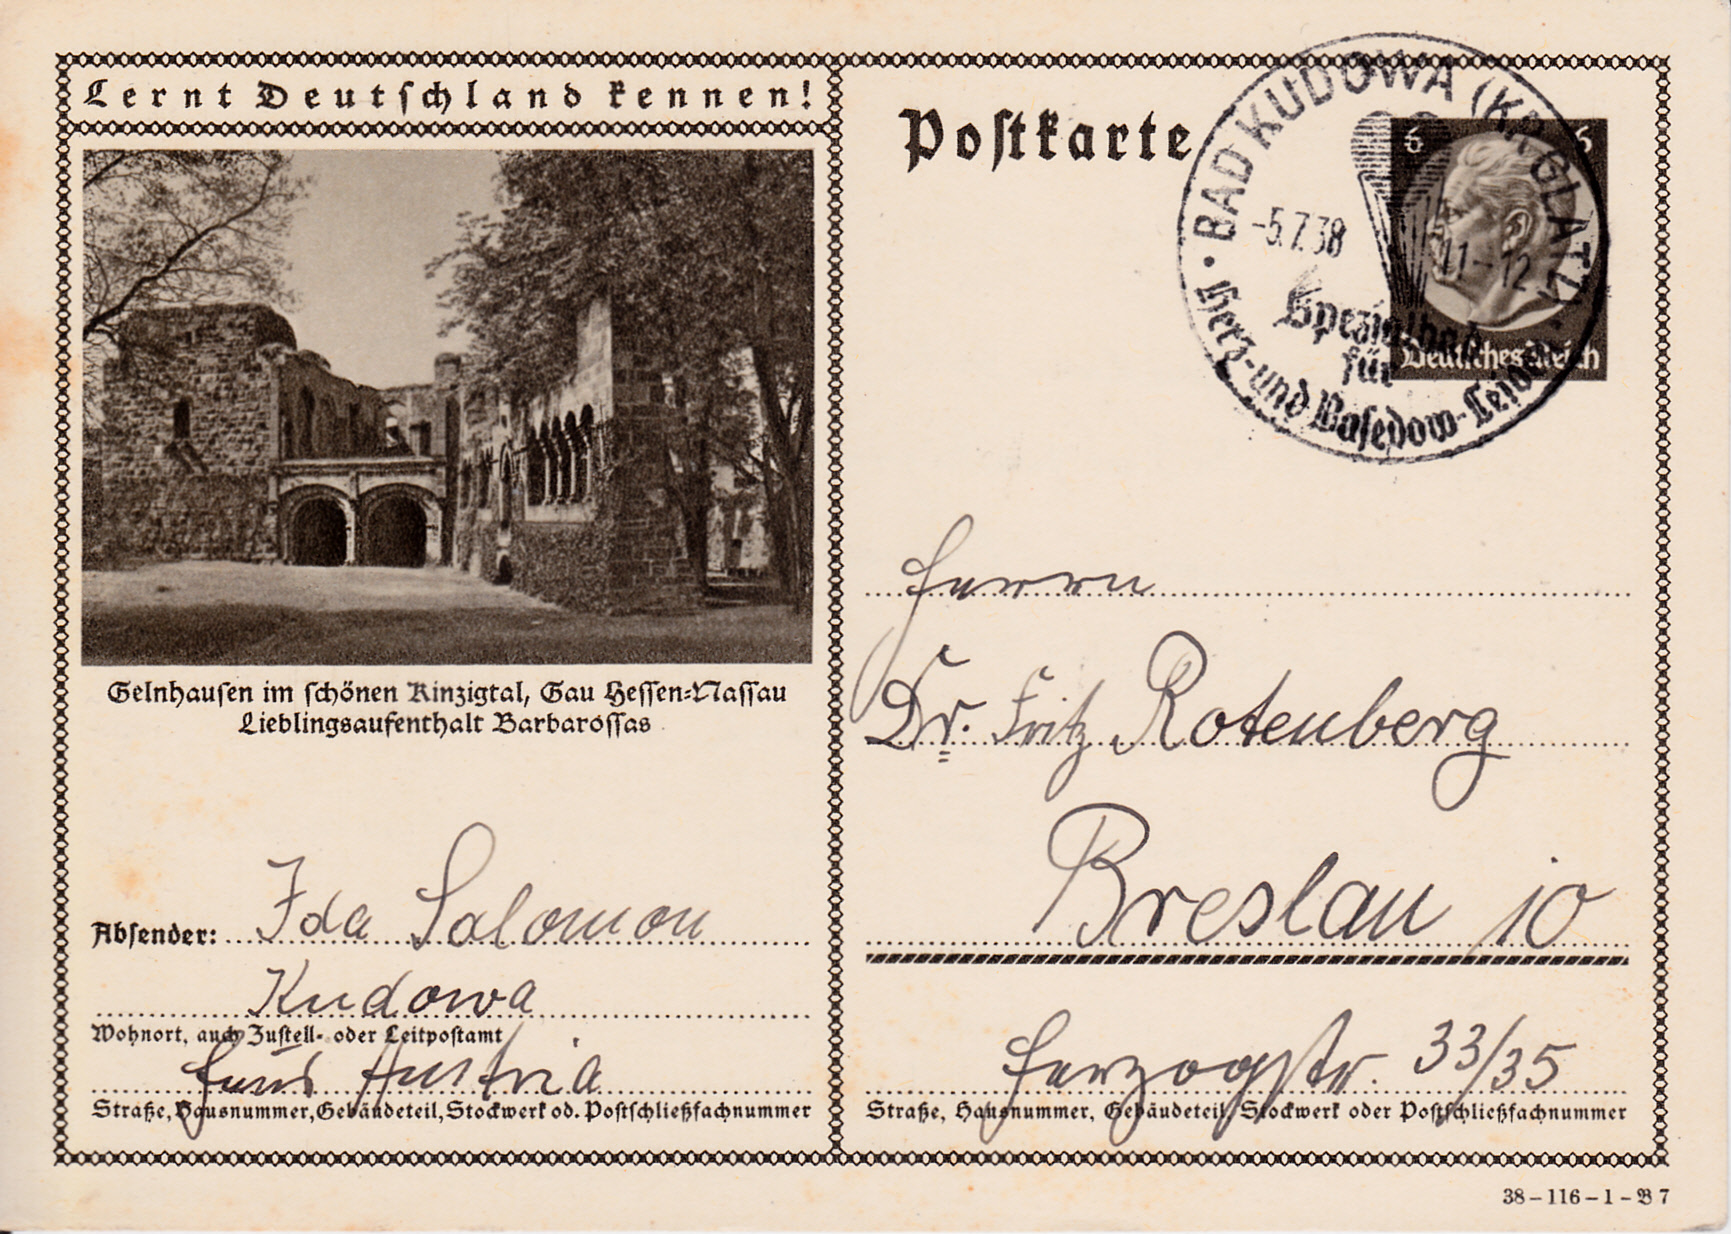 Lernt Deutschland kennen!
Postkarte
BAD KUDOWA (KR. GLATZ)
-5.7.38
11-12
Spezialbad
für
Herz- und Basedow-Leiden
6 6
Deutsches Reich
Gelnhausen im schönen Kinzigtal, Gau Hessen-Nassau
Lieblingsaufenthalt Barbarossas
Herrn
Dr. Fritz Rotenberg
Breslau 10
Herzogstr. 33/35
Straße, Hausnummer, Gebäudeteil, Stockwerk oder Postschließfachnummer
Absender: Ida Salomon
Kudowa
Wohnort, auch Zustell- oder Leitpostamt
Haus Austria
Straße, Hausnummer, Gebäudeteil, Stockwerk od. Postschließfachnummer
38-116-1-B 7